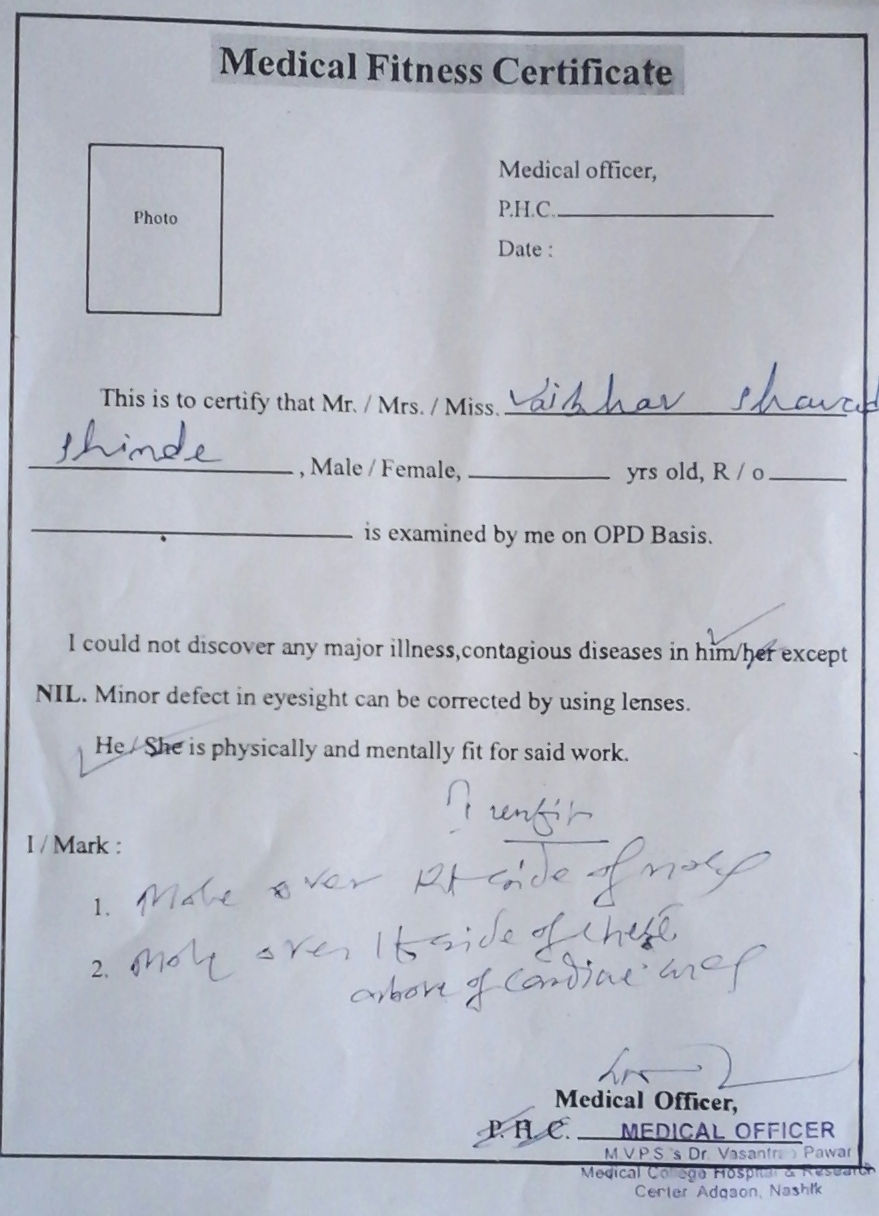 Medical Fitness Certificate
Photo
Medical officer,
P.H.C.
Date :
This is to certify that Mr. / Mrs. / Miss. Vaibhav Sharad
Shinde , Male / Female, yrs old, R / o
is examined by me on OPD Basis.
I could not discover any major illness,contagious diseases in him/her except
NIL. Minor defect in eyesight can be corrected by using lenses.
He / She is physically and mentally fit for said work.
I / Mark :
1. Mole over Rt side of nose
2. Mole over lt side of chest
above of cardiac area
Medical Officer,
P.H.C. MEDICAL OFFICER
M.V.P.S 's Dr. Vasantrao Pawar
Medical College Hospital & Research
Center Adgaon, Nashik